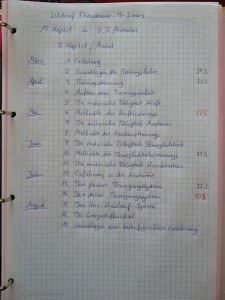 Lehrbrief Fitnesstrainer B-Lizenz
17 Kapitel in 8,5 Monaten
2 Kapitel / Monat
März 1. Einleitung
2. Grundlagen der Trainingslehre
April 3. Trainingssteuerung
4. Aufbau einer Trainingseinheit
5. Die motorische Fähigkeit Kraft
Mai 6. Methodik des Krafttrainings
7. Die motorische Fähigkeit Ausdauer
8. Methodik des Ausdauertrainings
Juni 9. Die motorische Fähigkeit Beweglichkeit
10. Methodik des Beweglichkeitstrainings
11. Die motorische Fähigkeit Koordination
Juli 12. Einführung in die Anatomie
13. Das passive Bewegungssystem
14. Das aktive Bewegungssystem
August 15. Das Herz-Kreislauf-System
16. Der Energiestoffwechsel
17. Grundlagen einer bedarfsgerechten Ernährung